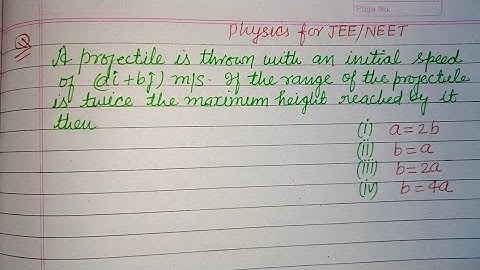 Page No.
Physics for JEE/NEET
Q A projectile is thrown with an initial speed
of (aî + bĵ) m/s. If the range of the projectile
is twice the maximum height reached by it
then
(i) a = 2b
(ii) b = a
(iii) b = 2a
(iv) b = 4a